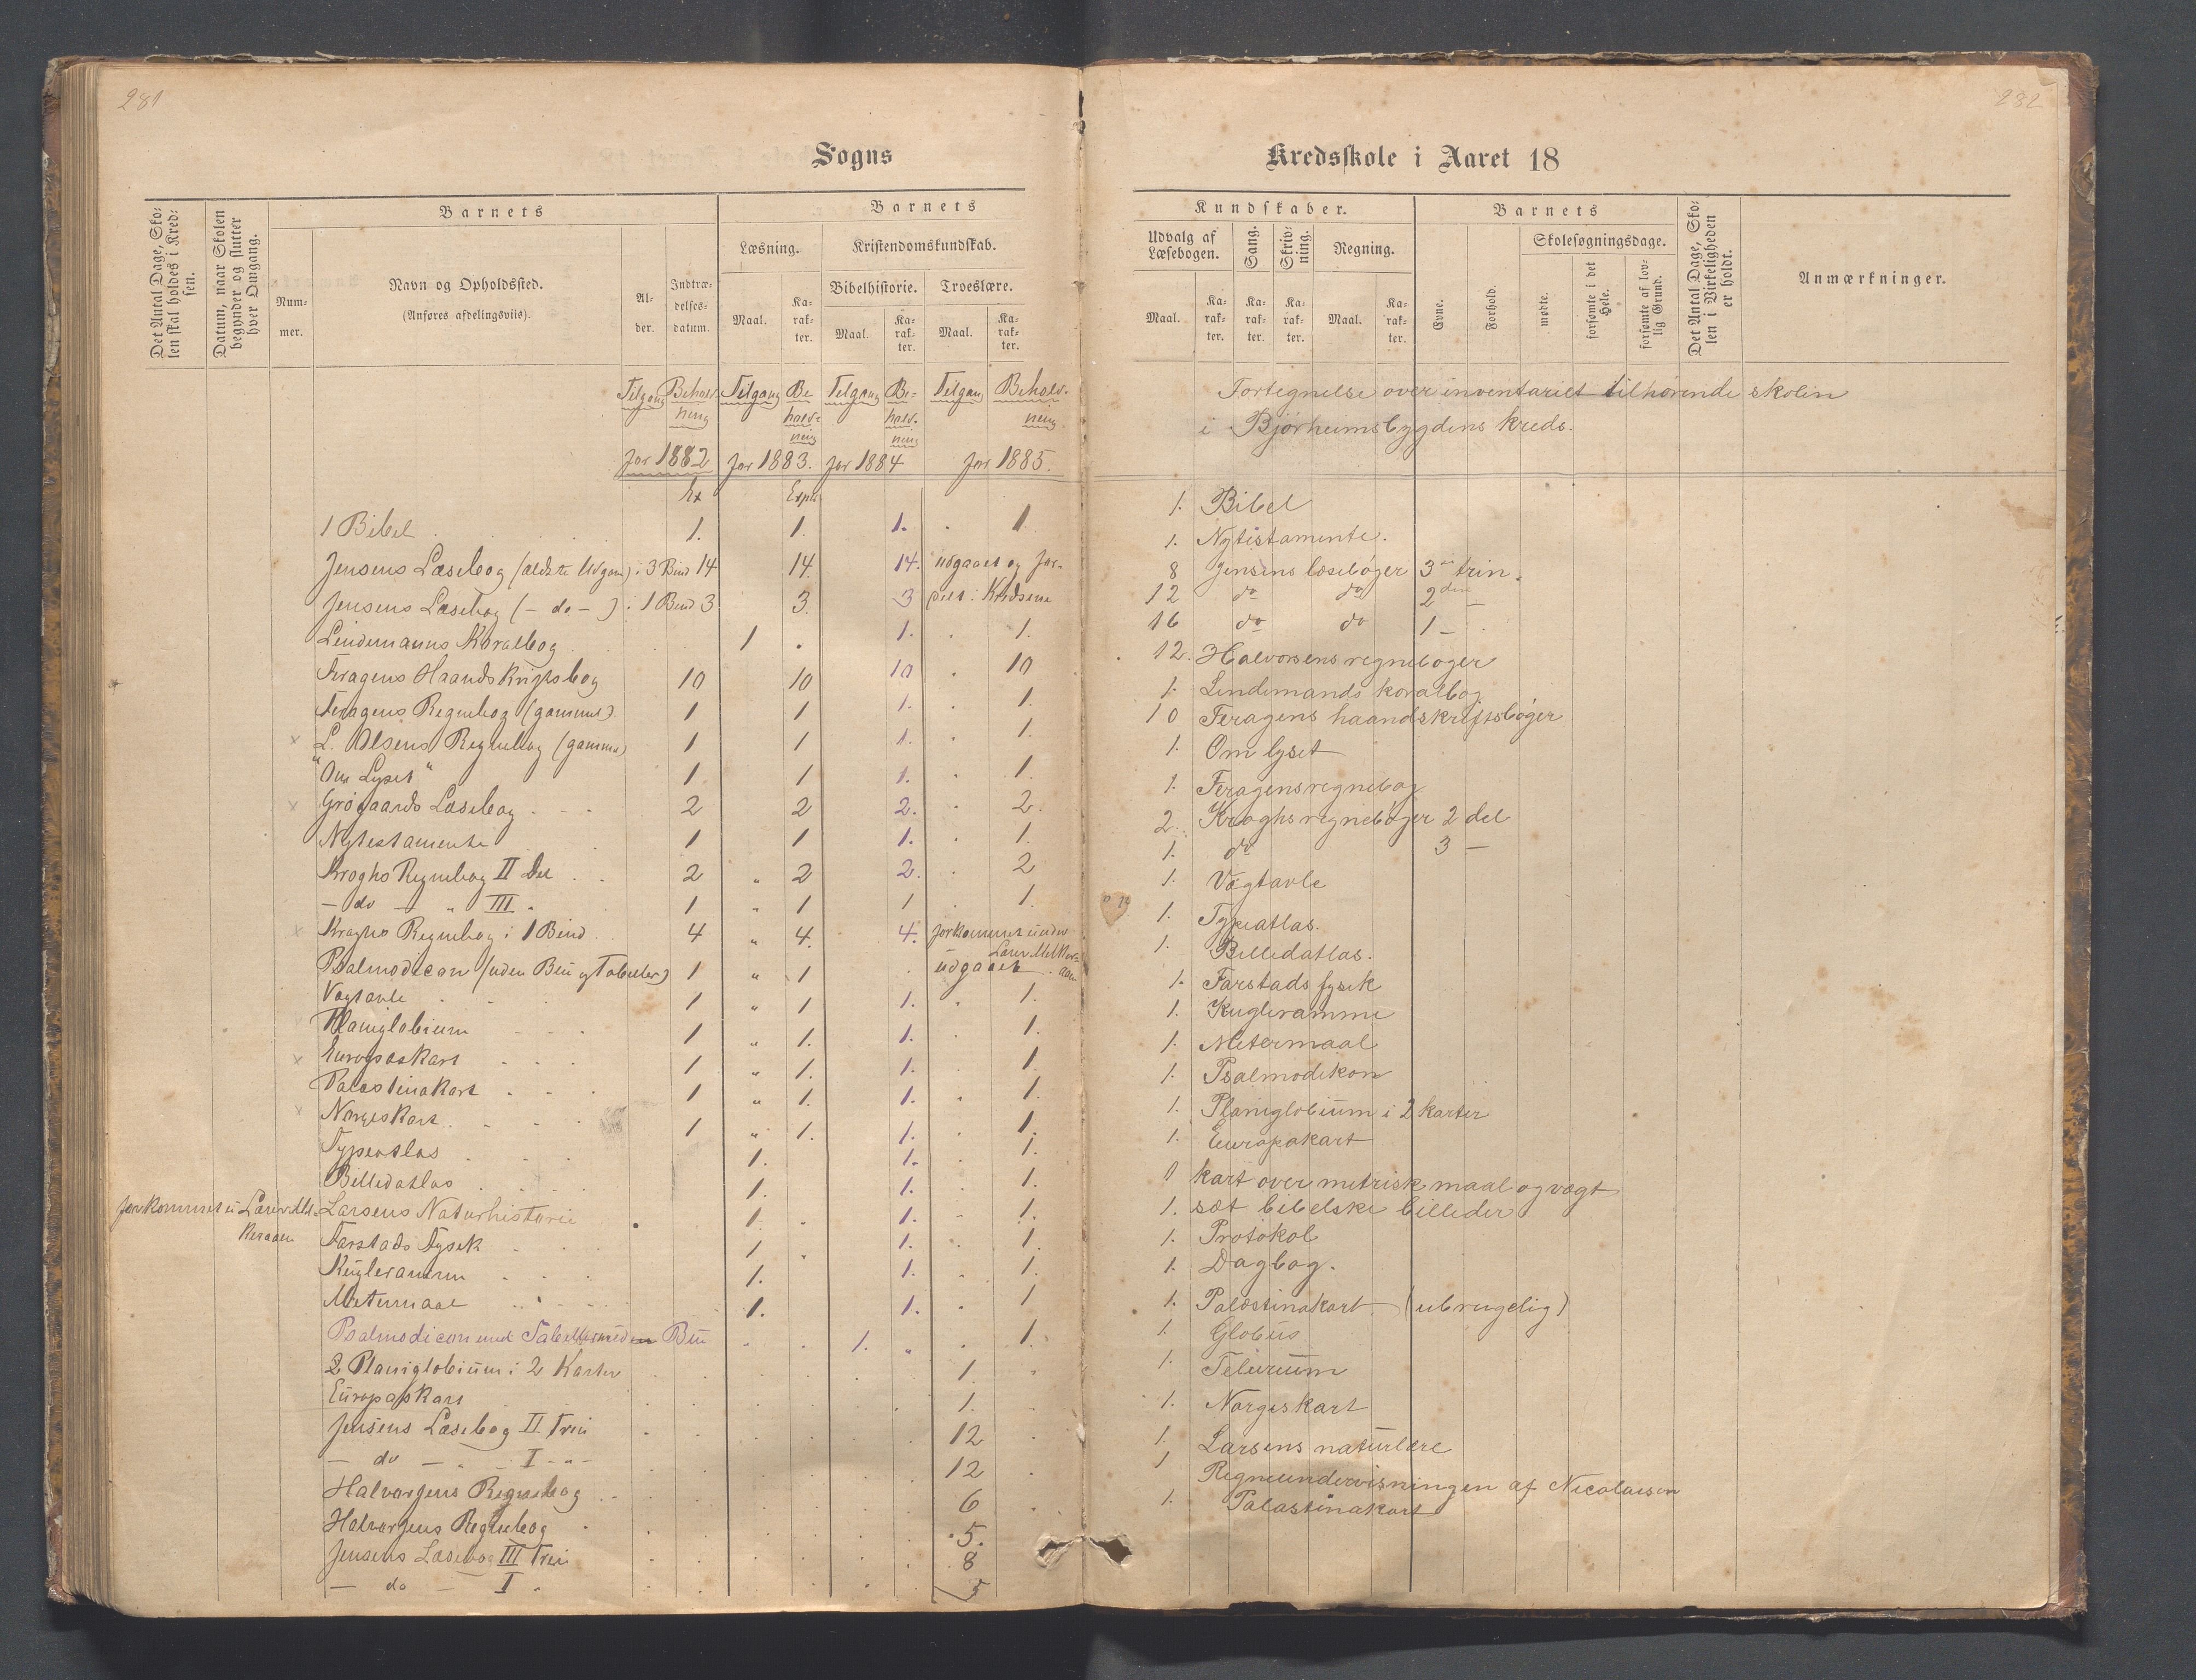 281
Sogns
Det Antal Dage, Sko-
len skal holdes i Kred-
sen.
Datum, naar Skolen
begynder og slutter
hver Omgang.
Barnets
Num-
mer.
Navn og Opholdssted.
(Anføres afdelingsviis).
Al-
der.
Indtræ-
delses-
datum.
Barnets
Læsning.
Kristendomskundskab.
Bibelhistorie.
Troeslære.
Maal.
Ka-
rak-
ter.
Maal.
Ka-
rak-
ter.
Maal.
Ka-
rak-
ter.
Tilgang Behold-
ning Tilgang Be-
hold-
ning Tilgang Be-
hold-
ning Tilgang Behold-
ning
for 1882 for 1883. for 1884 for 1885.
Ex Expl.
1 Bibel 1. 1. 1. 1
Jensens Læsebog (ældste Udgave) i 3 Bind 14 14. 14. udgaaet og for-
Jensens Læsebog (- do -) i 1 Bind 3 3. 3 delt i Kredsene
Lindemanns Koralbog 1 1. 1.
Feragens Haandskriftsbog 10 10 10 10
Feragens Regnebog (gammel) 1 1 1. 1.
L. Olsens Regnebog (gammel) 1 1 1. 1.
"Om Lyset" 1 1 1. 1.
Grøgaards Læsebog 2 2 2. 2.
Nytestamente 1 1 1. 1.
Kroghs Regnebog II Del 2 " 2 2. 2
- do - " III " 1 " 1 1 1.
Kroghs Regnebog i 1 Bind 4 " 4. 4. forkommet under
Lærer
Psalmodicon (uden Bue og Tabeller) 1 " 1 udgaaet
Vægtavle 1 " 1 1. 1.
Planiglobium 1 " 1. 1. 1.
Europaskart 1 " 1. 1. 1
Palæstinakart 1 " 1. 1. 1.
Norgeskart 1 " 1. 1. 1.
Typeatlas 1. 1. 1.
Billedatlas 1. 1. 1.
forkommet u Lærer Larsens Naturhistorie 1. 1. 1.
Farstads Fysik 1 1. 1.
Kugleramm 1. 1. 1.
Metermaal 1. 1. 1
Psalmodicon med Tabeller Bue 1. " 1.
2 Planiglobium i 2 Karter 1.
Europaskart 1.
Jensens Læsebog II Trin 12
- do - " - I - " - 12
Halvorsens Regnebog 6
Halvorsens Regnebog 5.
Jensens Læsebog III Trin 8
- do - I " 5
282
Kredsskole i Aaret 18
Kundskaber.
Udvalg af
Læsebogen.
Sang.
Skriv-
ning.
Regning.
Maal.
Ka-
rak-
ter.
Ka-
rak-
ter.
Ka-
rak-
ter.
Maal.
Ka-
rak-
ter.
Barnets
Evne.
Forhold.
Skolesøgningsdage.
mødte.
forsømte i det
Hele.
forsømte af lov-
lig Grund.
Det Antal Dage, Sko-
len i Virkeligheden
er holdt.
Anmærkninger.
Fortegnelse over inventariet tilhørende skolen
i Bjørheimsbygdens kreds.
1. Bibel
1. Nytestamente.
8 Jensens læsebøger 3die trin.
12 do do 2den -
16 do do 1 -
12. Halvorsens regnebøger
1. Lindemands koralbog
10 Feragens haandskriftsbøger
1. Om lyset
1. Feragens regnebog
2. Kroghs regnebøger 2 del
1. do 3 -
1. Vægtavle
1. Typeatlas.
1. Billedatlas.
1. Farstads fysik
1. Kugleramme
1. Metermaal
1. Psalmodikon
1. Planiglobium i 2 karter
1. Europakart
1 kart over metrisk maal og vægt
1. sæt bibelske billeder
1. Protokol
1. Dagbog.
1. Palæstinakart (ubrugelig)
1. Globus
1. Telurium
1. Norgeskart
1. Larsens naturlære
1 Regneundervisningen af Nicolaisen
1. Palæstinakart